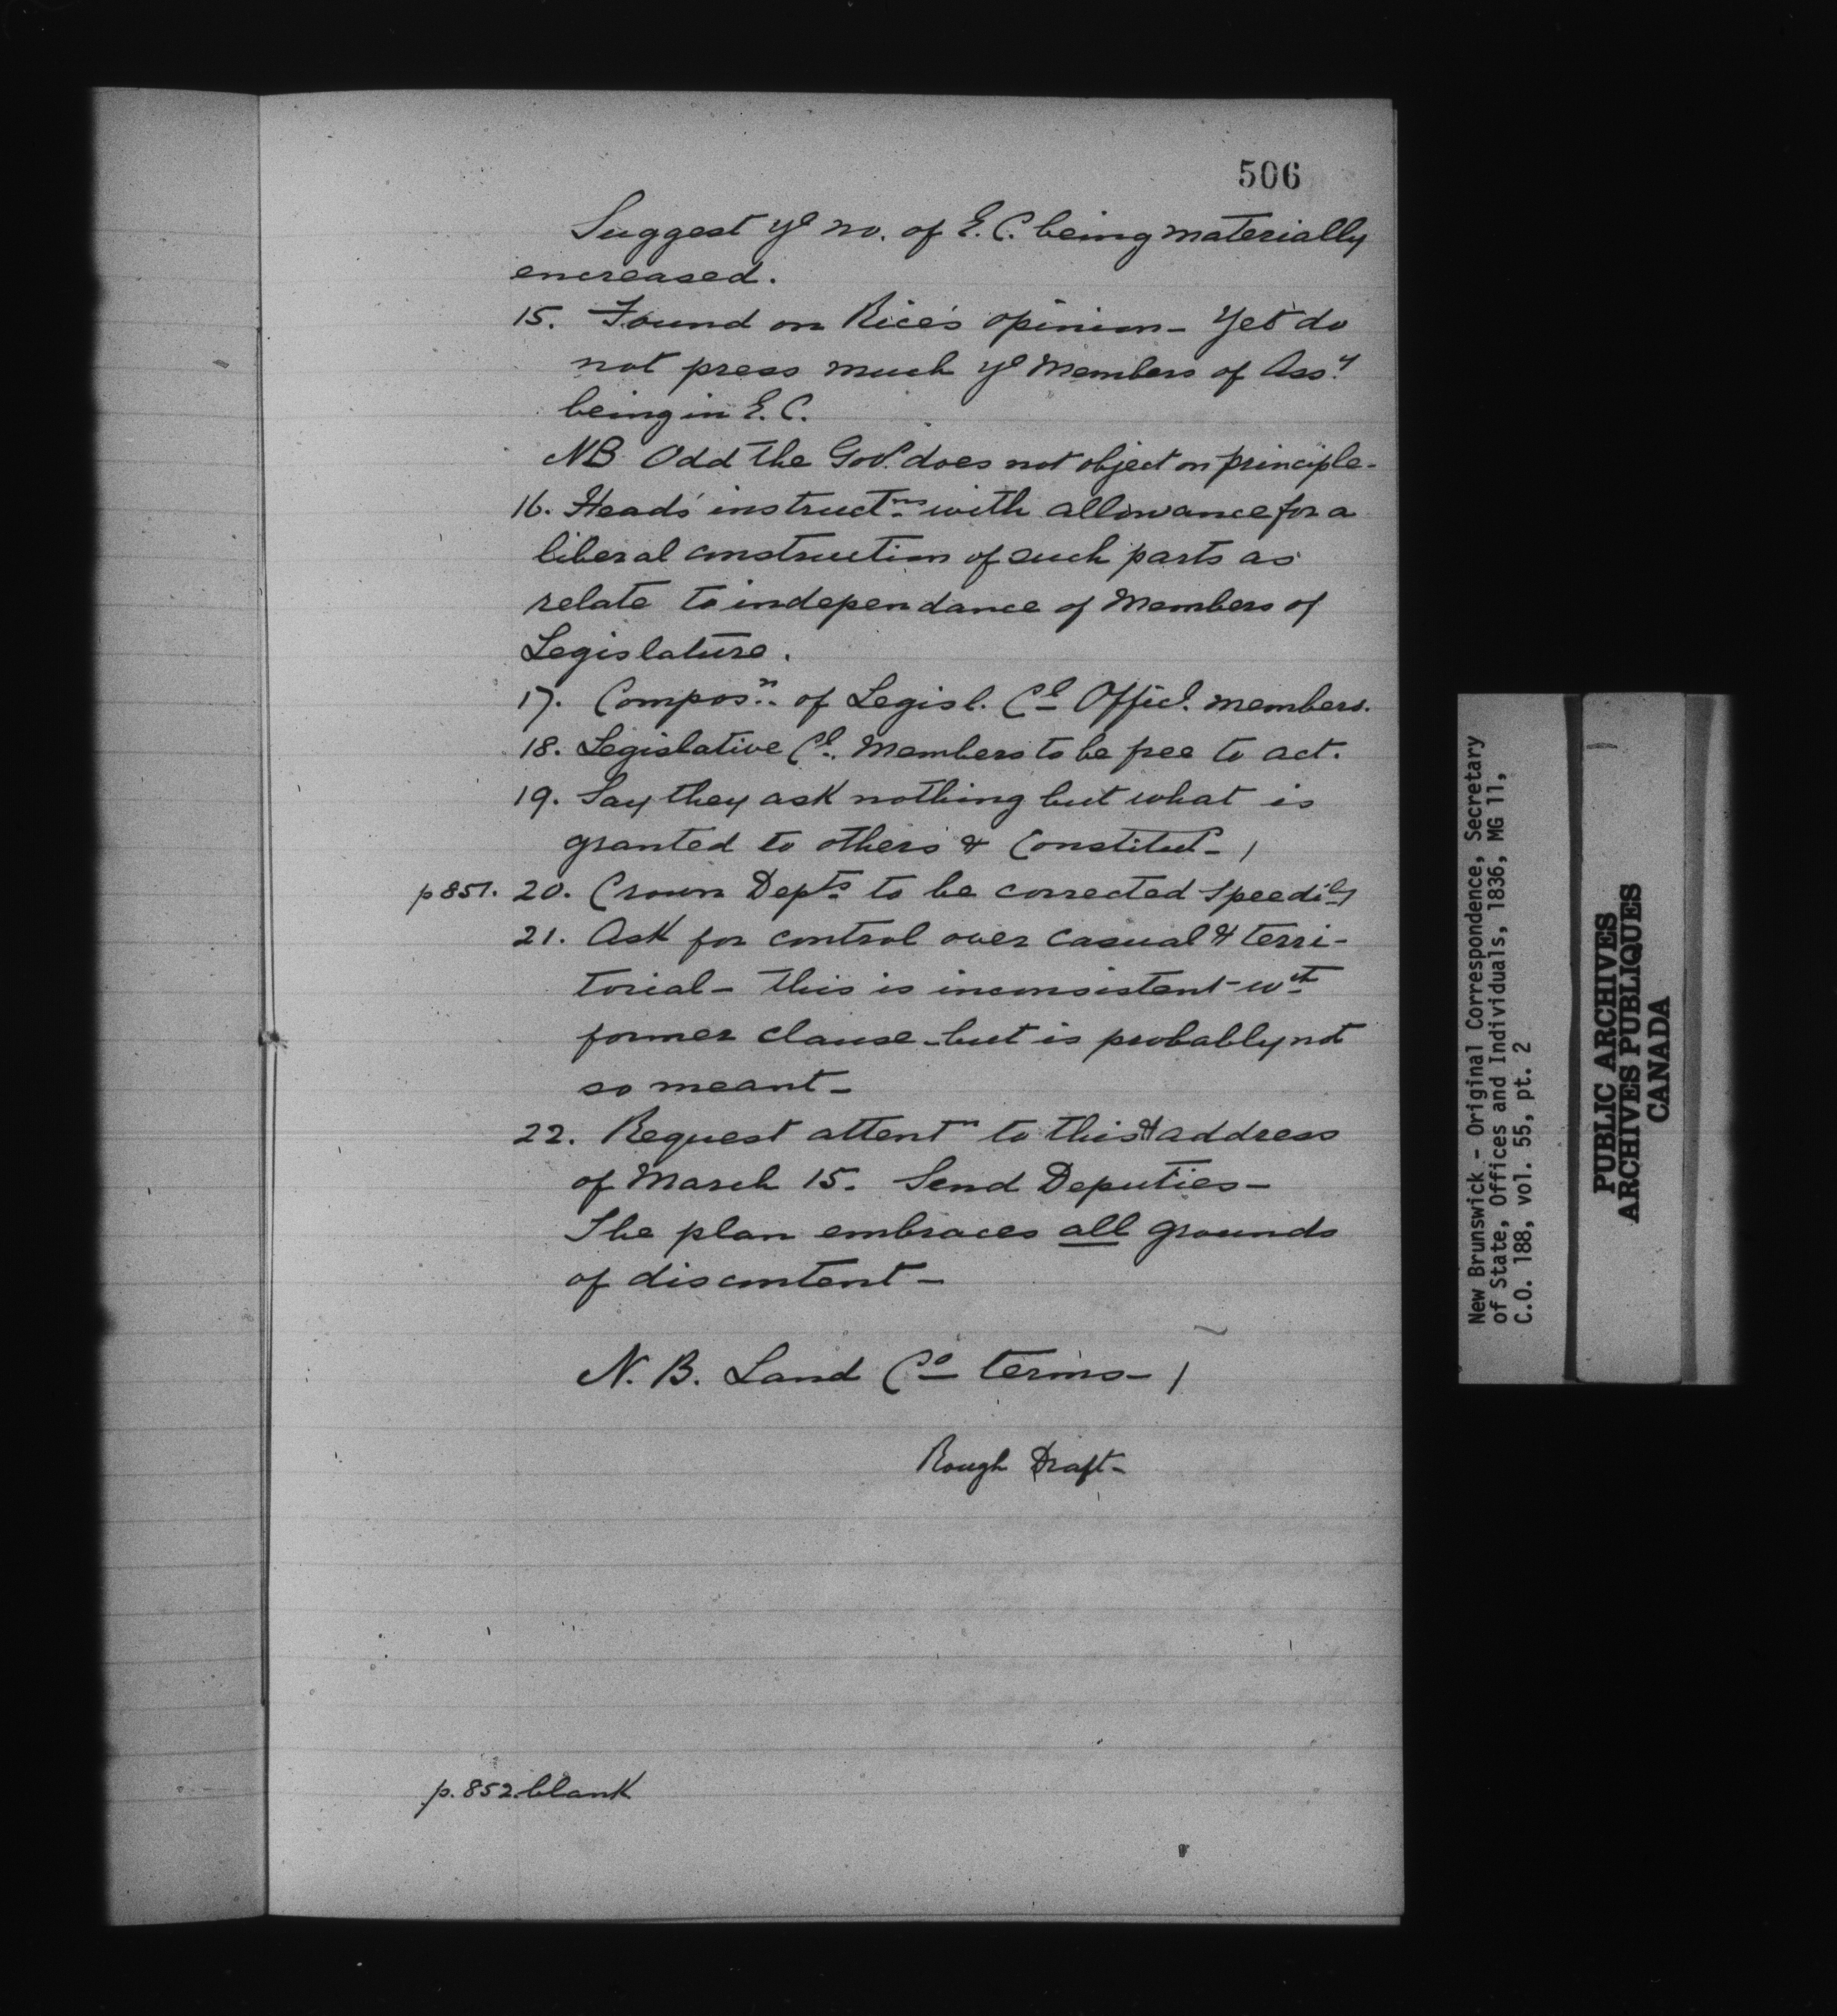 506
Suggest yᵉ no. of E.C. being materially
encreased.
15. Found on Rice's opinion - Yet do
not press much yᵉ Members of Assʸ
being in E.C.
NB Odd the Govʳ does not object on principle -
16. Heads' instructⁿˢ with allowance for a
liberal construction of such parts as
relate to independance of Members of
Legislature.
17. Composⁿ. of Legisl. Cˡ Officˡ. members.
18. Legislative Cˡ. Members to be free to act.
19. Say they ask nothing but what is
granted to others & Constitutˡ - /
p 851. 20. Crown Deptˢ to be corrected speediˡʸ
21. Ask for control over casual & terri-
torial - this is inconsistent - wᵗʰ
former clause - but is probably not
so meant -
22. Request attentⁿ to this & address
of March 15. Send Deputies -
The plan embraces all grounds
of discontent -
N.B. Land Cᵒ terms - /
Rough Draft -
p. 852 blank
New Brunswick - Original Correspondence, Secretary
of State, Offices and Individuals, 1836, MG 11,
C.O. 188, vol. 55, pt. 2
PUBLIC ARCHIVES
ARCHIVES PUBLIQUES
CANADA